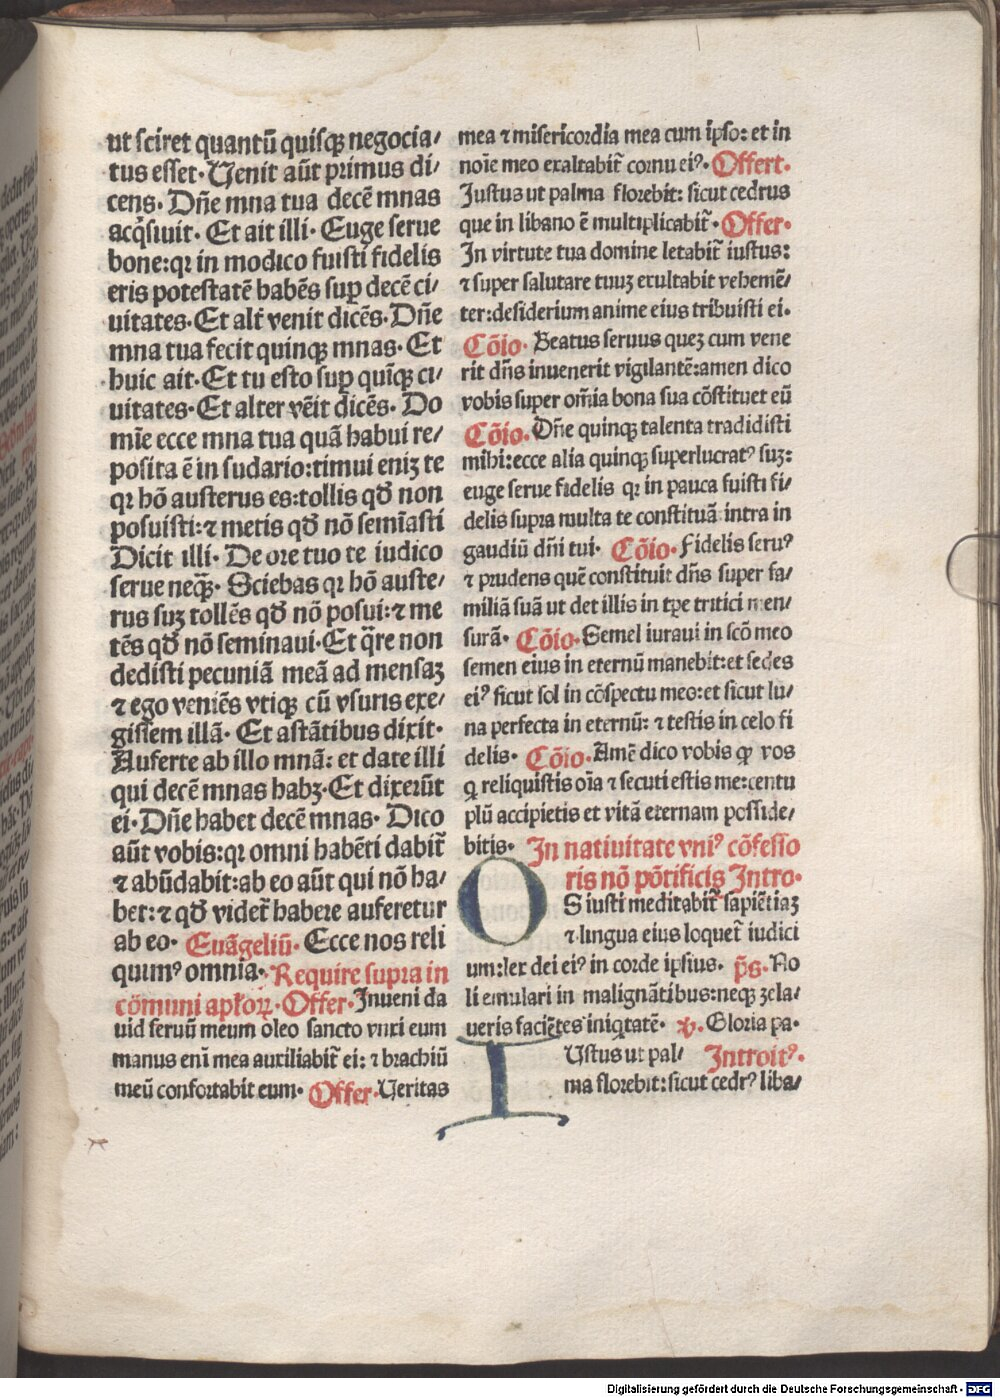 ut sciret quantū quisqꝫ negocia/
tus esset· Venit aūt primus di/
cens· Dn̄e mna tua decē mnas
acq̄siuit· Et ait illi· Euge serue
bone:qꝛ in modico fuisti fidelis
eris potestatē habēs suꝑ decē ci/
uitates· Et alt̄ venit dicēs· Dn̄e
mna tua fecit quinqꝫ mnas· Et
huic ait· Et tu esto suꝑ quīqꝫ ci/
uitates· Et alter vēit dicēs· Do
mīe ecce mna tua quā habui re/
posita ē in sudario:timui eniꝫ te
qꝛ hō austerus es:tollis qđ non
posuisti:⁊ metis qđ nō semīasti
Dicit illi· De ore tuo te iudico
serue neqꝫ· Sciebas qꝛ hō auste/
rus suꝫ tollēs qđ nō posui:⁊ me
tēs qđ nō seminaui· Et q̄re non
dedisti pecuniā meā ad mensaꝫ
⁊ ego veniēs vtiqꝫ cū vsuris exe/
gissem illā· Et astātibus dixit·
Auferte ab illo mnā: et date illi
qui decē mnas habꝫ· Et dixerūt
ei· Dn̄e habet decē mnas· Dico
aūt vobis:qꝛ omni habēti dabit̄
⁊ abūdabit:ab eo aūt qui nō ha/
bet:⁊ qđ videt̄ habere auferetur
ab eo· Euāgeliū· Ecce nos reli
quimꝰ omnia· Require supra in
cōmuni apl̄oꝝ· Offer· Inueni da
uid seruū meum oleo sancto vnxi eum
manus enī mea auxiliabit̄ ei: ⁊ brachiū
meū confortabit eum· Offer· Veritas
mea ⁊ misericordia mea cum ipso: et in
noīe meo exaltabit̄ cornu eiꝰ· Offert·
Iustus ut palma florebit: sicut cedrus
que in libano ē multiplicabit̄· Offer·
In virtute tua domine letabit̄ iustus:
⁊ super salutare tuuꝫ exultabit vehemē/
ter:desiderium anime eius tribuisti ei·
Cōio· Beatus seruus queꝫ cum vene
rit dn̄s inuenerit vigilantē:amen dico
vobis super om̄ia bona sua cōstituet eū
Cōio· Dn̄e quinqꝫ talenta tradidisti
mihi:ecce alia quinqꝫ superlucratꝰ suꝫ:
euge serue fidelis qꝛ in pauca fuisti fi/
delis supra multa te constituā intra in
gaudiū dn̄i tui· Cōio· Fidelis seruꝰ
⁊ prudens quē constituit dn̄s super fa/
miliā suā ut det illis in tp̄e tritici men/
surā· Cōio· Semel iuraui in scō meo
semen eius in eternū manebit:et sedes
eiꝰ sicut sol in cōspectu meo:et sicut lu/
na perfecta in eternū: ⁊ testis in celo fi
delis· Cōio· Amē dico vobis ꝙ vos
q̄ reliquistis oīa ⁊ secuti estis me:centu
plū accipietis et vitā eternam posside/
bitis· In natiuitate vniꝰ cōfesso
ris nō pōtificis Intro·
OS iusti meditabit̄ sapiētiaꝫ
⁊ lingua eius loquet̄ iudici
um:lex dei eiꝰ in corde ipsius· p̄s· No
li emulari in malignātibus:neqꝫ zela/
ueris faciētes iniq̄tatē· ꝟ· Gloria pa·
IVstus ut pal/ Introitꝰ·
ma florebit:sicut cedrꝰ liba/
Digitalisierung gefördert durch die Deutsche Forschungsgemeinschaft - DFG